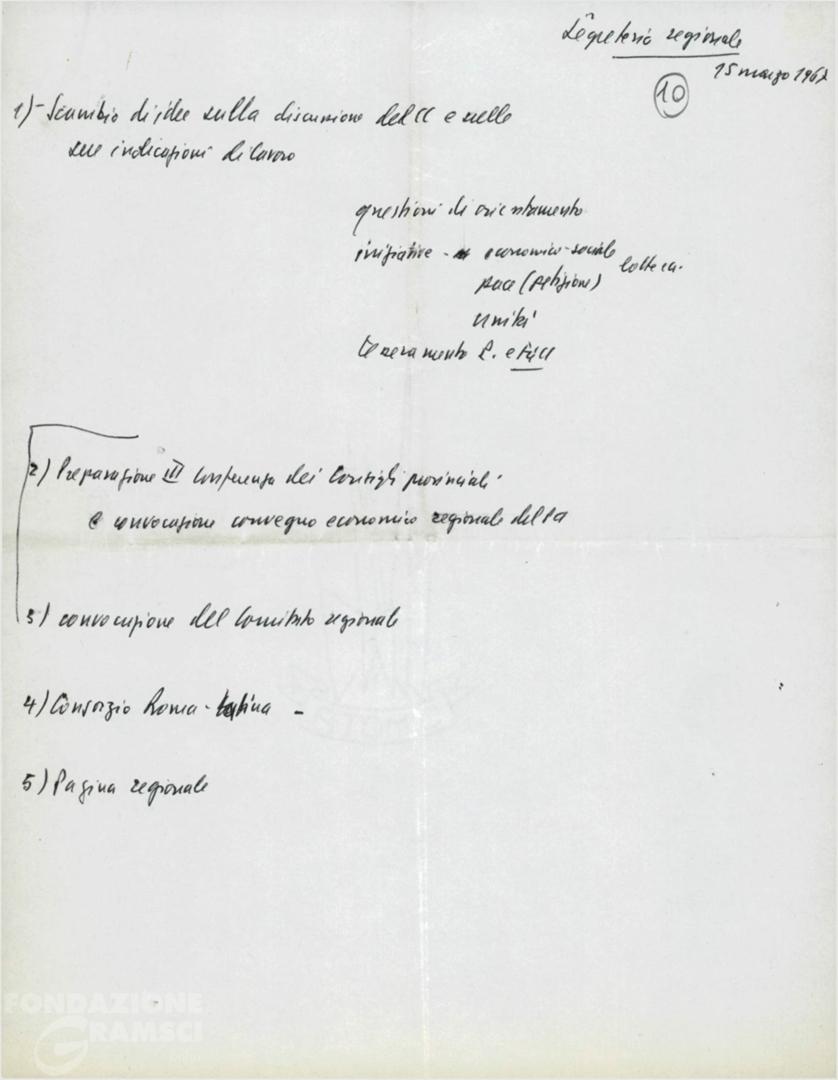 Segreteria regionale
15 marzo 1962
10
1) - Scambio di idee sulla discussione del CC e sulle
sue indicazioni di lavoro
questioni di orientamento
iniziative - economico-sociale
pace (petizione)
unità
Tesseramento P. e FGCI
2) Preparazione III Conferenza dei Consigli provinciali
e convocazione convegno economico regionale del
3) convocazione del Comitato regionale
4) Consorzio Roma-Latina -
5) Pagina regionale
FONDAZIONE
GRAMSCI